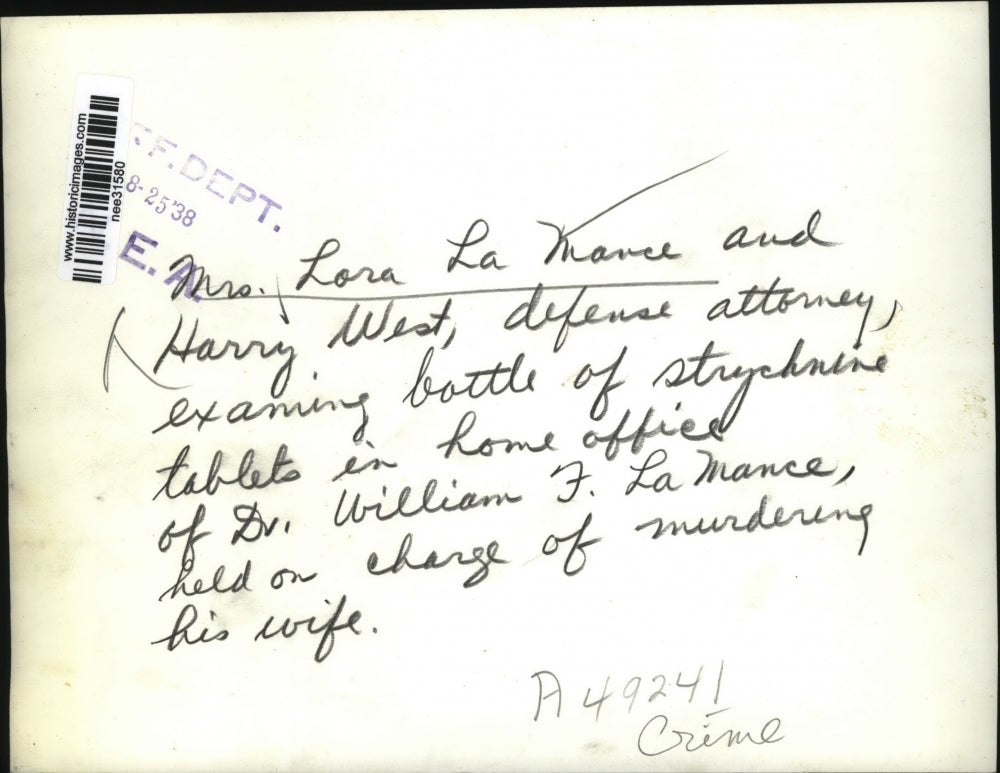 www.historicimages.com
nee31580
F. DEPT.
8-25'38
E. A.
Mrs. Lora La Mance and
Harry West, defense attorney,
examing bottle of strychnine
tablets in home office
of Dr. William F. La Mance,
held on charge of murdering
his wife.
A 49241
Crime